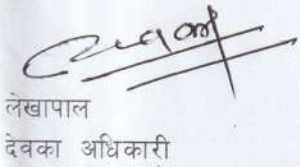 लेखापाल
देवका अधिकारी